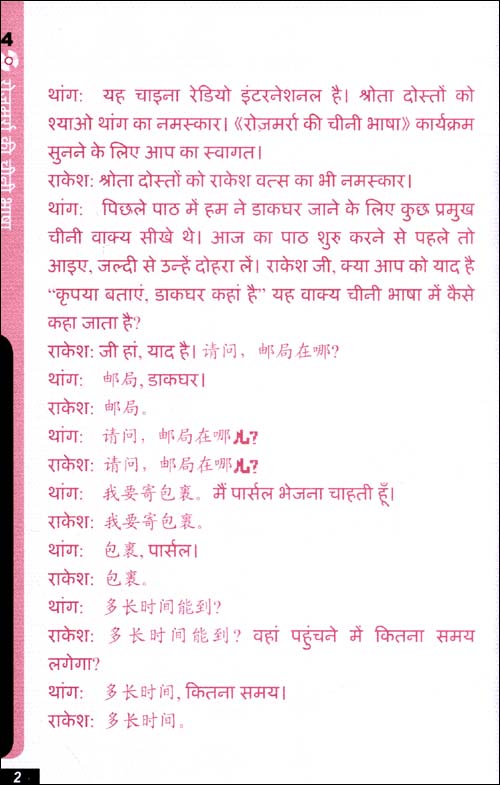 4
रोज़मर्रा की चीनी भाषा
थांग: यह चाइना रेडियो इंटरनेशनल है। श्रोता दोस्तों को
श्याओ थांग का नमस्कार। 《रोज़मर्रा की चीनी भाषा》 कार्यक्रम
सुनने के लिए आप का स्वागत।
राकेश: श्रोता दोस्तों को राकेश वत्स का भी नमस्कार।
थांग: पिछले पाठ में हम ने डाकघर जाने के लिए कुछ प्रमुख
चीनी वाक्य सीखे थे। आज का पाठ शुरु करने से पहले तो
आइए, जल्दी से उन्हें दोहरा लें। राकेश जी, क्या आप को याद है
“कृपया बताएं, डाकघर कहां है” यह वाक्य चीनी भाषा में कैसे
कहा जाता है?
राकेश: जी हां, याद है। 请问，邮局在哪?
थांग: 邮局, डाकघर।
राकेश: 邮局。
थांग: 请问，邮局在哪儿?
राकेश: 请问，邮局在哪儿?
थांग: 我要寄包裹。 मैं पार्सल भेजना चाहती हूँ।
राकेश: 我要寄包裹。
थांग: 包裹, पार्सल।
राकेश: 包裹。
थांग: 多长时间能到?
राकेश: 多长时间能到? वहां पहुंचने में कितना समय
लगेगा?
थांग: 多长时间, कितना समय।
राकेश: 多长时间。
2